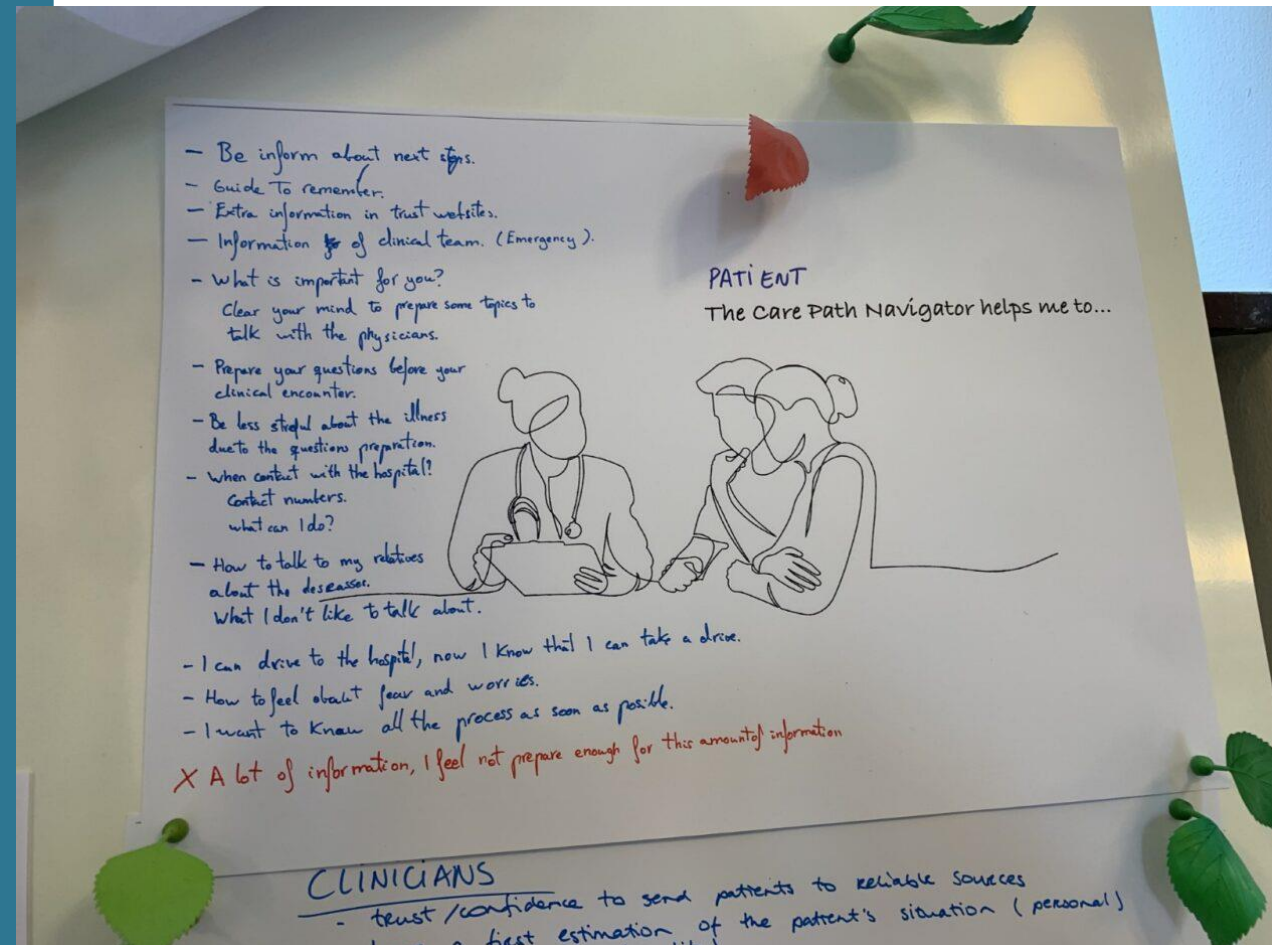 - Be inform about next steps.
- Guide To remember.
- Extra information in trust websites.
- Information of clinical team. (Emergency).
- What is important for you?
Clear your mind to prepare some topics to
talk with the physicians.
- Prepare your questions before your
clinical encounter.
- Be less streful about the illness
due to the questions preparation.
- When contact with the hospital?
Contact numbers.
what can I do?
- How to talk to my relatives
about the deseasses.
What I don't like to talk about.
- I can drive to the hospital, now I know that I can take a drive.
- How to feel about fear and worries.
- I want to know all the process as soon as posible.
X A lot of information, I feel not prepare enough for this amount of information
PATiENT
The Care Path Navigator helps me to...
CLINICIANS
- trust/confidence to send patients to reliable sources
first estimation of the patient's situation (personal)